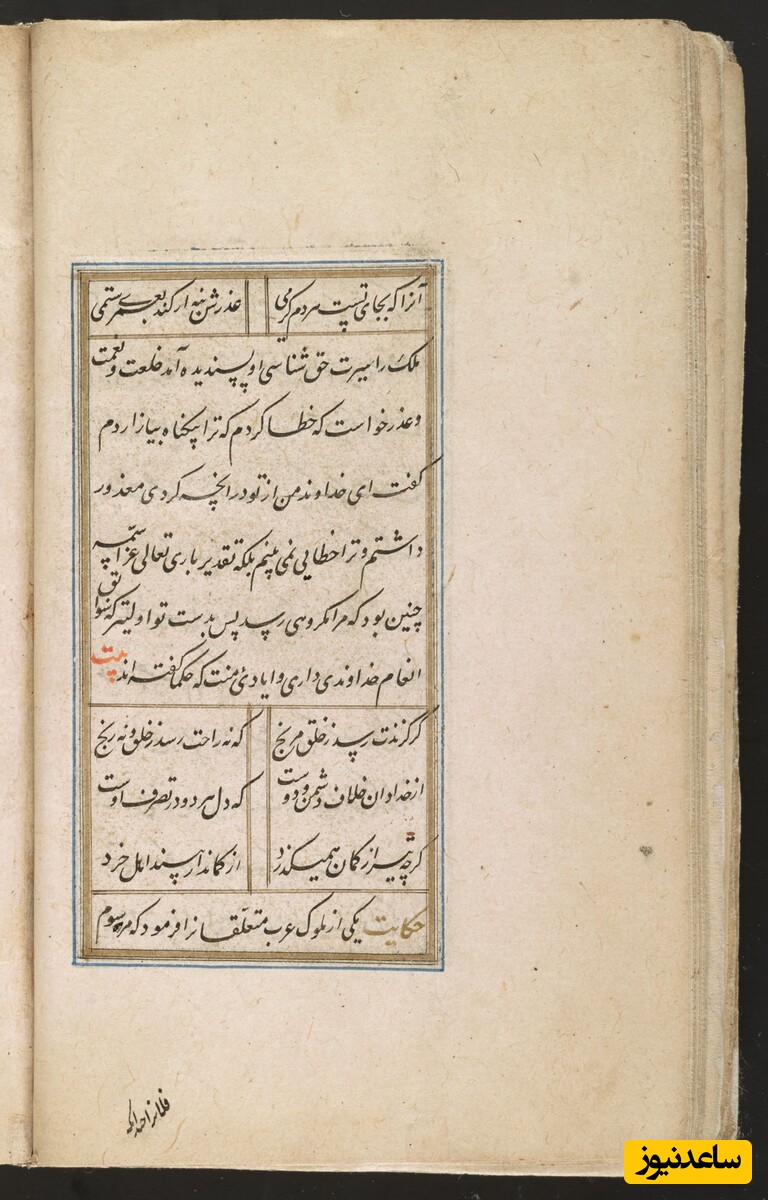 آنرا که بجای تست هردم کرمی عذرش بنه ار کند بعمری ستمی
ملک را سیرت حق شناسی او پسندیده آمد خلعت و نعمت
و عذر خواست که خطا کردم که ترا بیگناه بیازاردم
گفت ای خداوند من از تو در انچه کردی معذور
داشتم و ترا خطایی نمی بینم بلکه تقدیر باری تعالی عز اسمه
چنین بود که مرا مکروهی رسد پس بدست تو اولیتر که سوابق
انعام خداوندی داری و ایادی منت که حکما گفته اند بیت
گر گزندت رسد ز خلق مرنج که نه راحت رسد ز خلق و نه رنج
از خدا دان خلاف دشمن و دوست که دل هر دو در تصرف اوست
گرچه تیر از کمان همیگذرد از کماندار بیند اهل خرد
حکایت یکی از ملوک عرب متعلقانرا فرمود که مرسوم
فلانرا چندانکه
ساعدنیوز